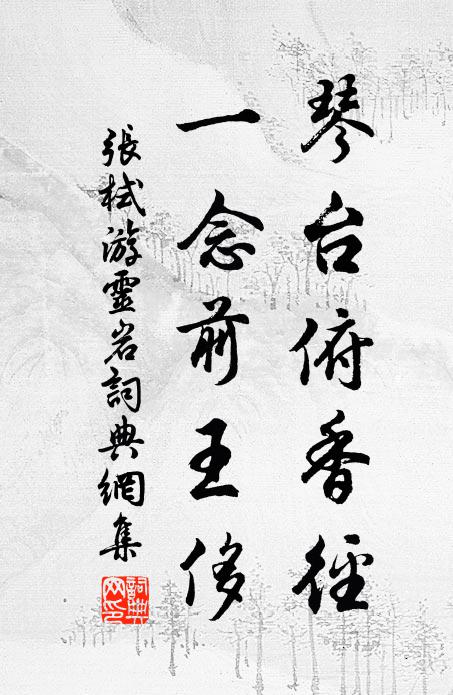 琴台俯香徑
一念前王侈
張栻游靈岩詞典網集
詞典網印